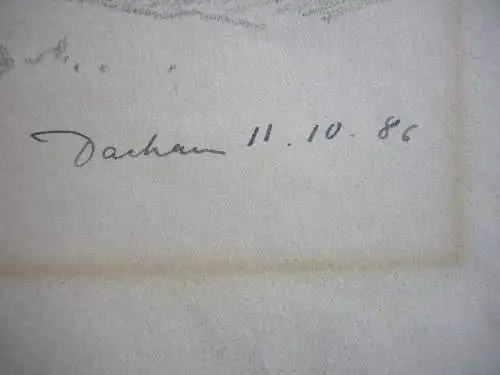 Dachau 11.10.86